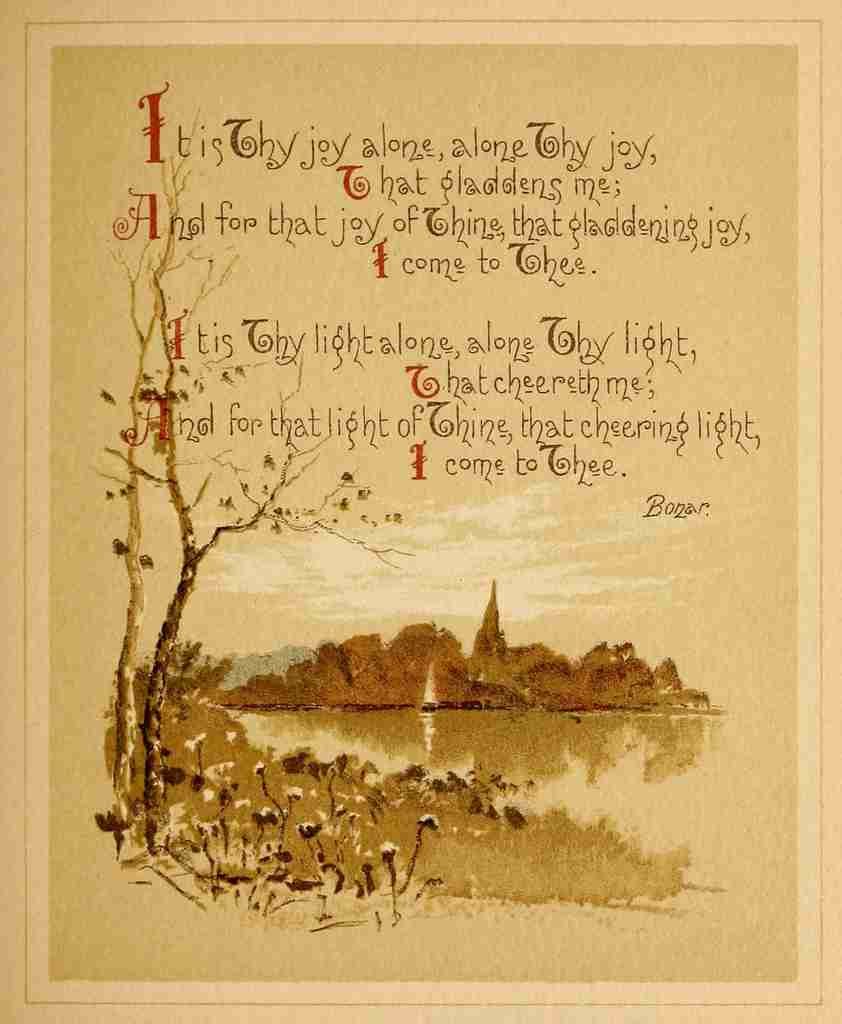 It is Thy joy alone, alone Thy joy,
That gladdens me;
And for that joy of Thine, that gladdening joy,
I come to Thee.
It is Thy light alone, alone Thy light,
That cheereth me;
And for that light of Thine, that cheering light,
I come to Thee.
Bonar.